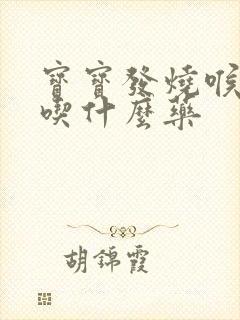 寶寶發燒喉
喫什麼藥
胡錦霞